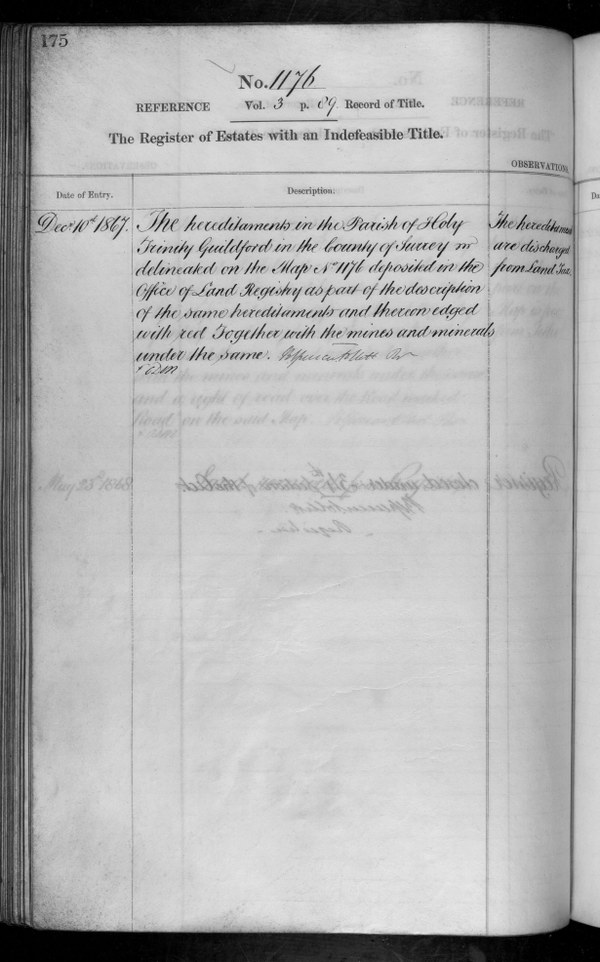 175
No. 1176
REFERENCE Vol. 3 p. 89 Record of Title.
The Register of Estates with an Indefeasible Title.
OBSERVATIONS
Date of Entry.
Description.
Decr 10th 1867.
The hereditaments in the Parish of Holy
Trinity Guildford in the County of Surrey
delineated on the Map No 1176 deposited in the
Office of Land Registry as part of the description
of the same hereditaments and thereon edged
with red Together with the mines and minerals
under the same.
The hereditamen
are discharged
from Land Tax.